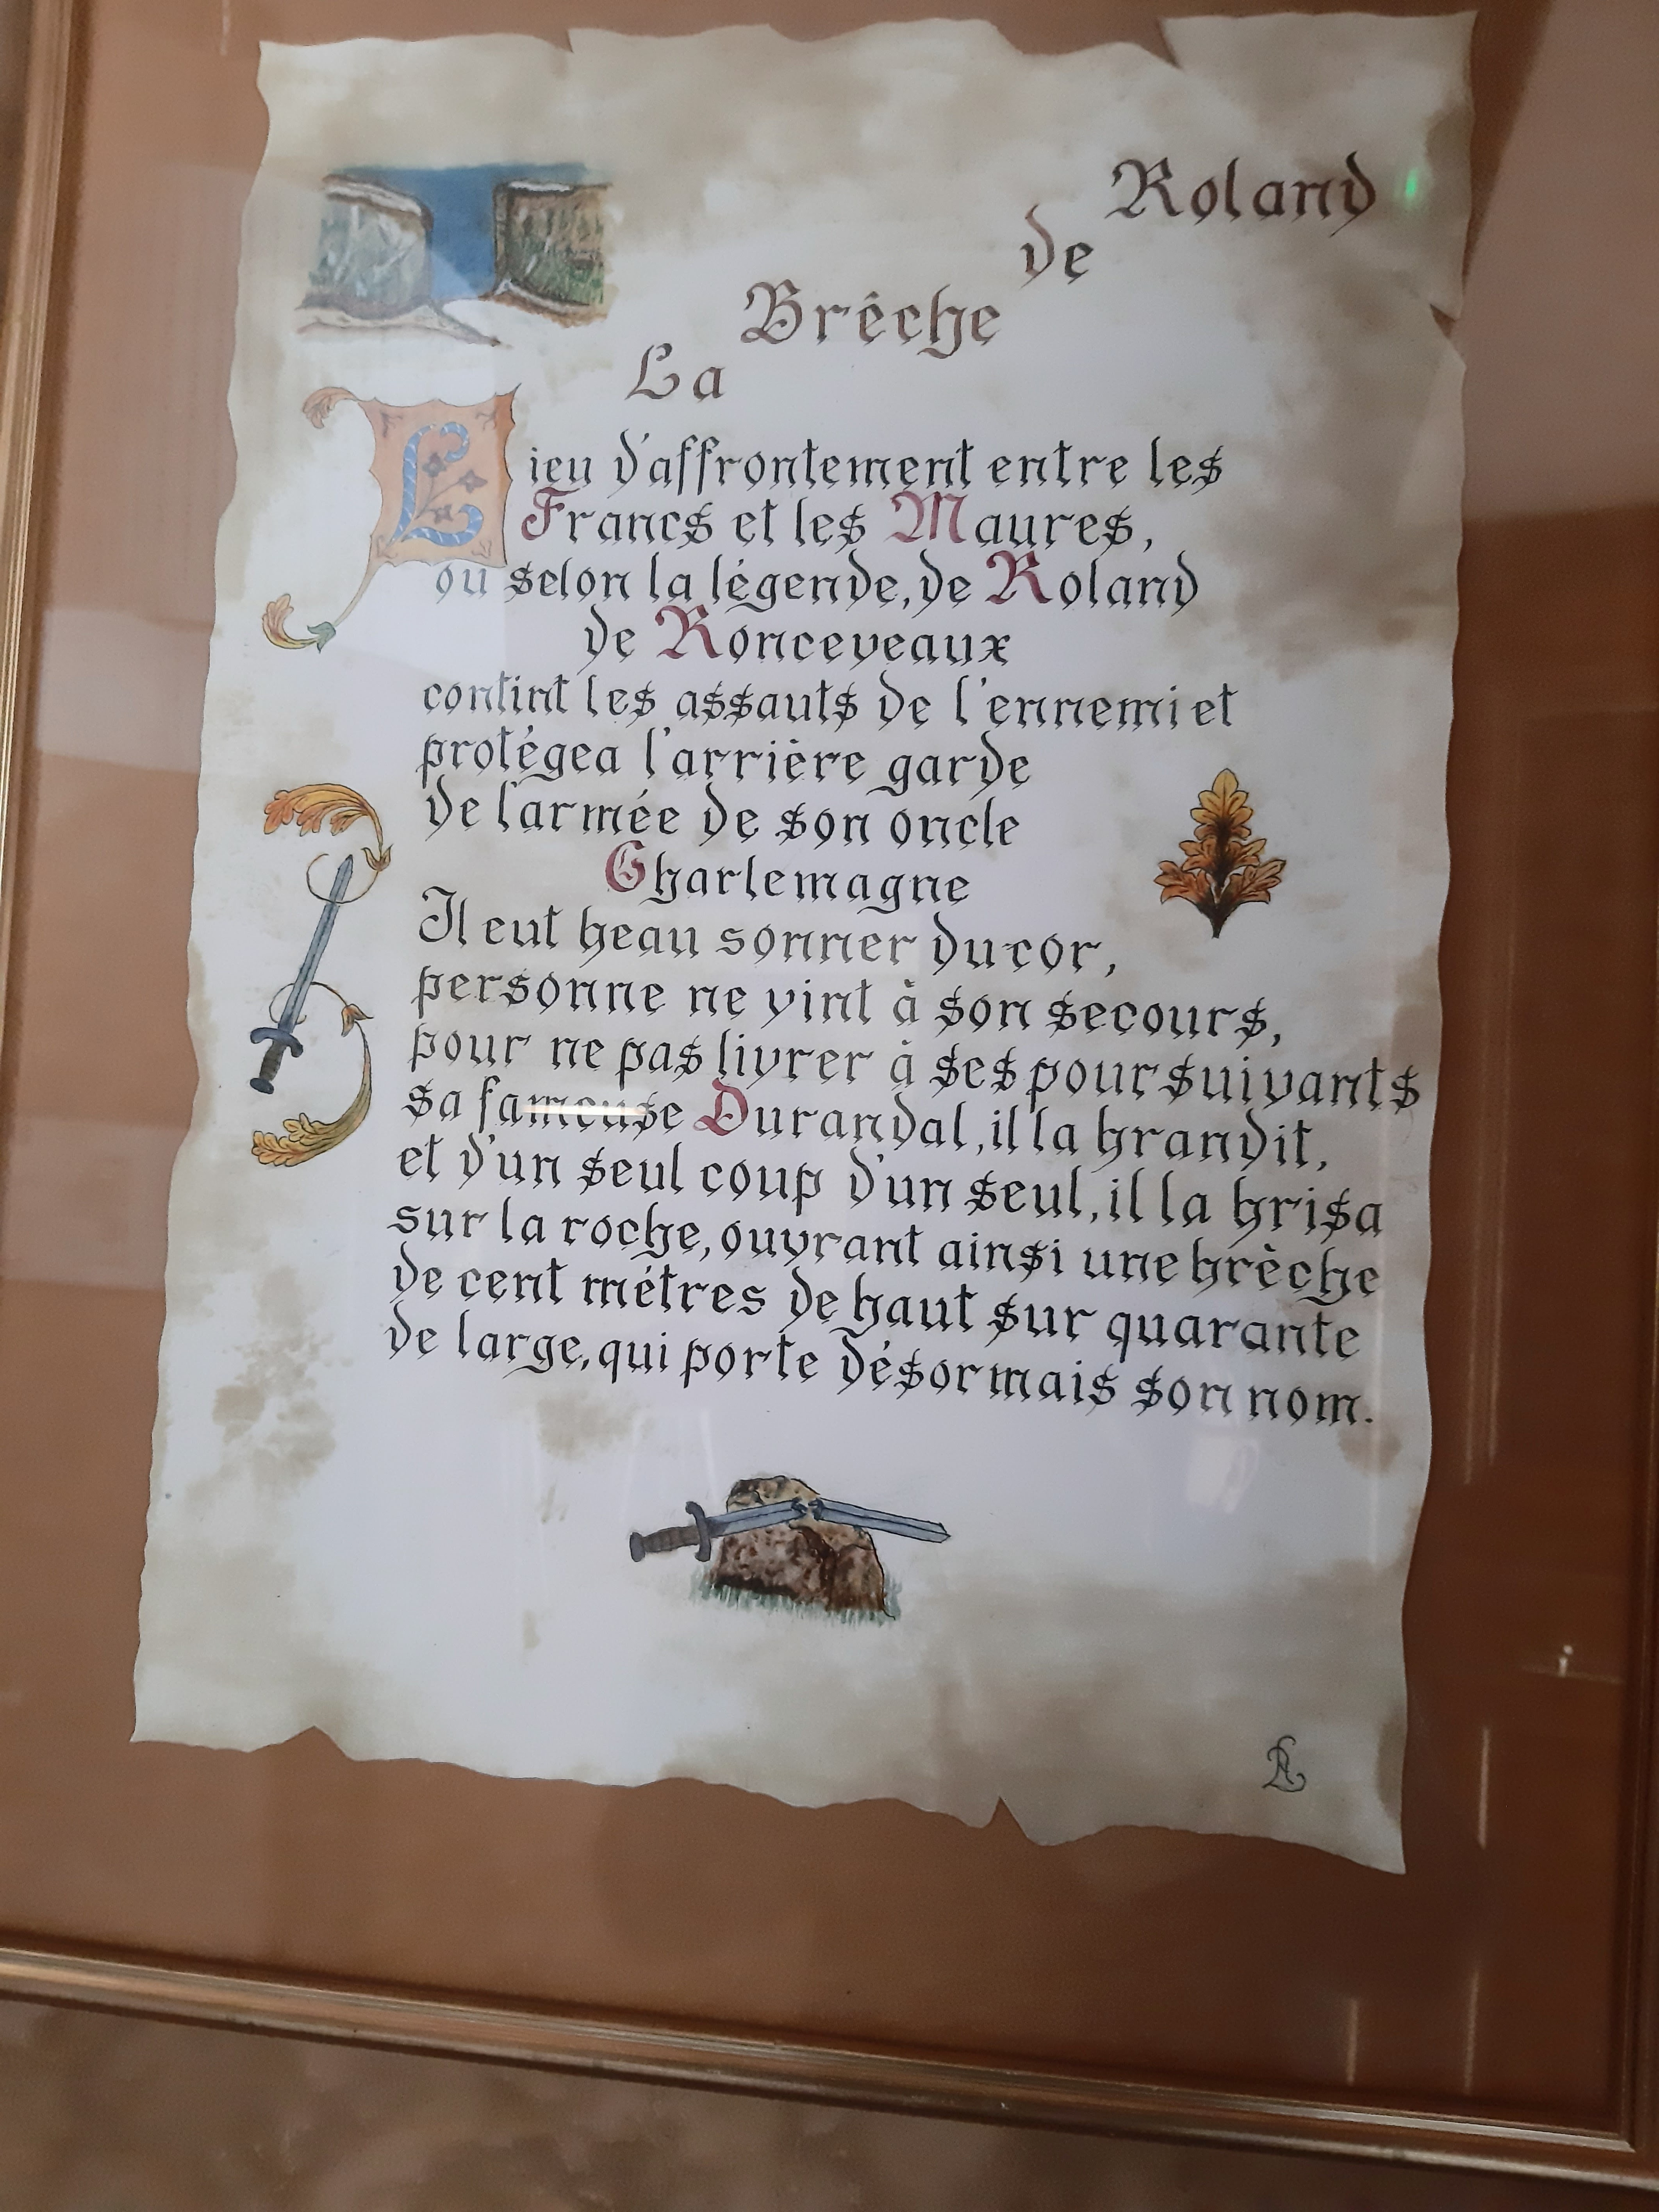 La Brêche de Roland
Lieu d'affrontement entre les
Francs et les Maures,
ou selon la légende, de Roland
de Ronceveaux
contint les assauts de l'ennemi et
protégea l'arrière garde
de l'armée de son oncle
Charlemagne
Il eut beau sonner du cor,
personne ne vint à son secours,
pour ne pas livrer à ses poursuivants
sa fameuse Durandal, il la brandit,
et d'un seul coup d'un seul, il la brisa
sur la roche, ouvrant ainsi une brèche
de cent métres de haut sur quarante
de large, qui porte désormais son nom.